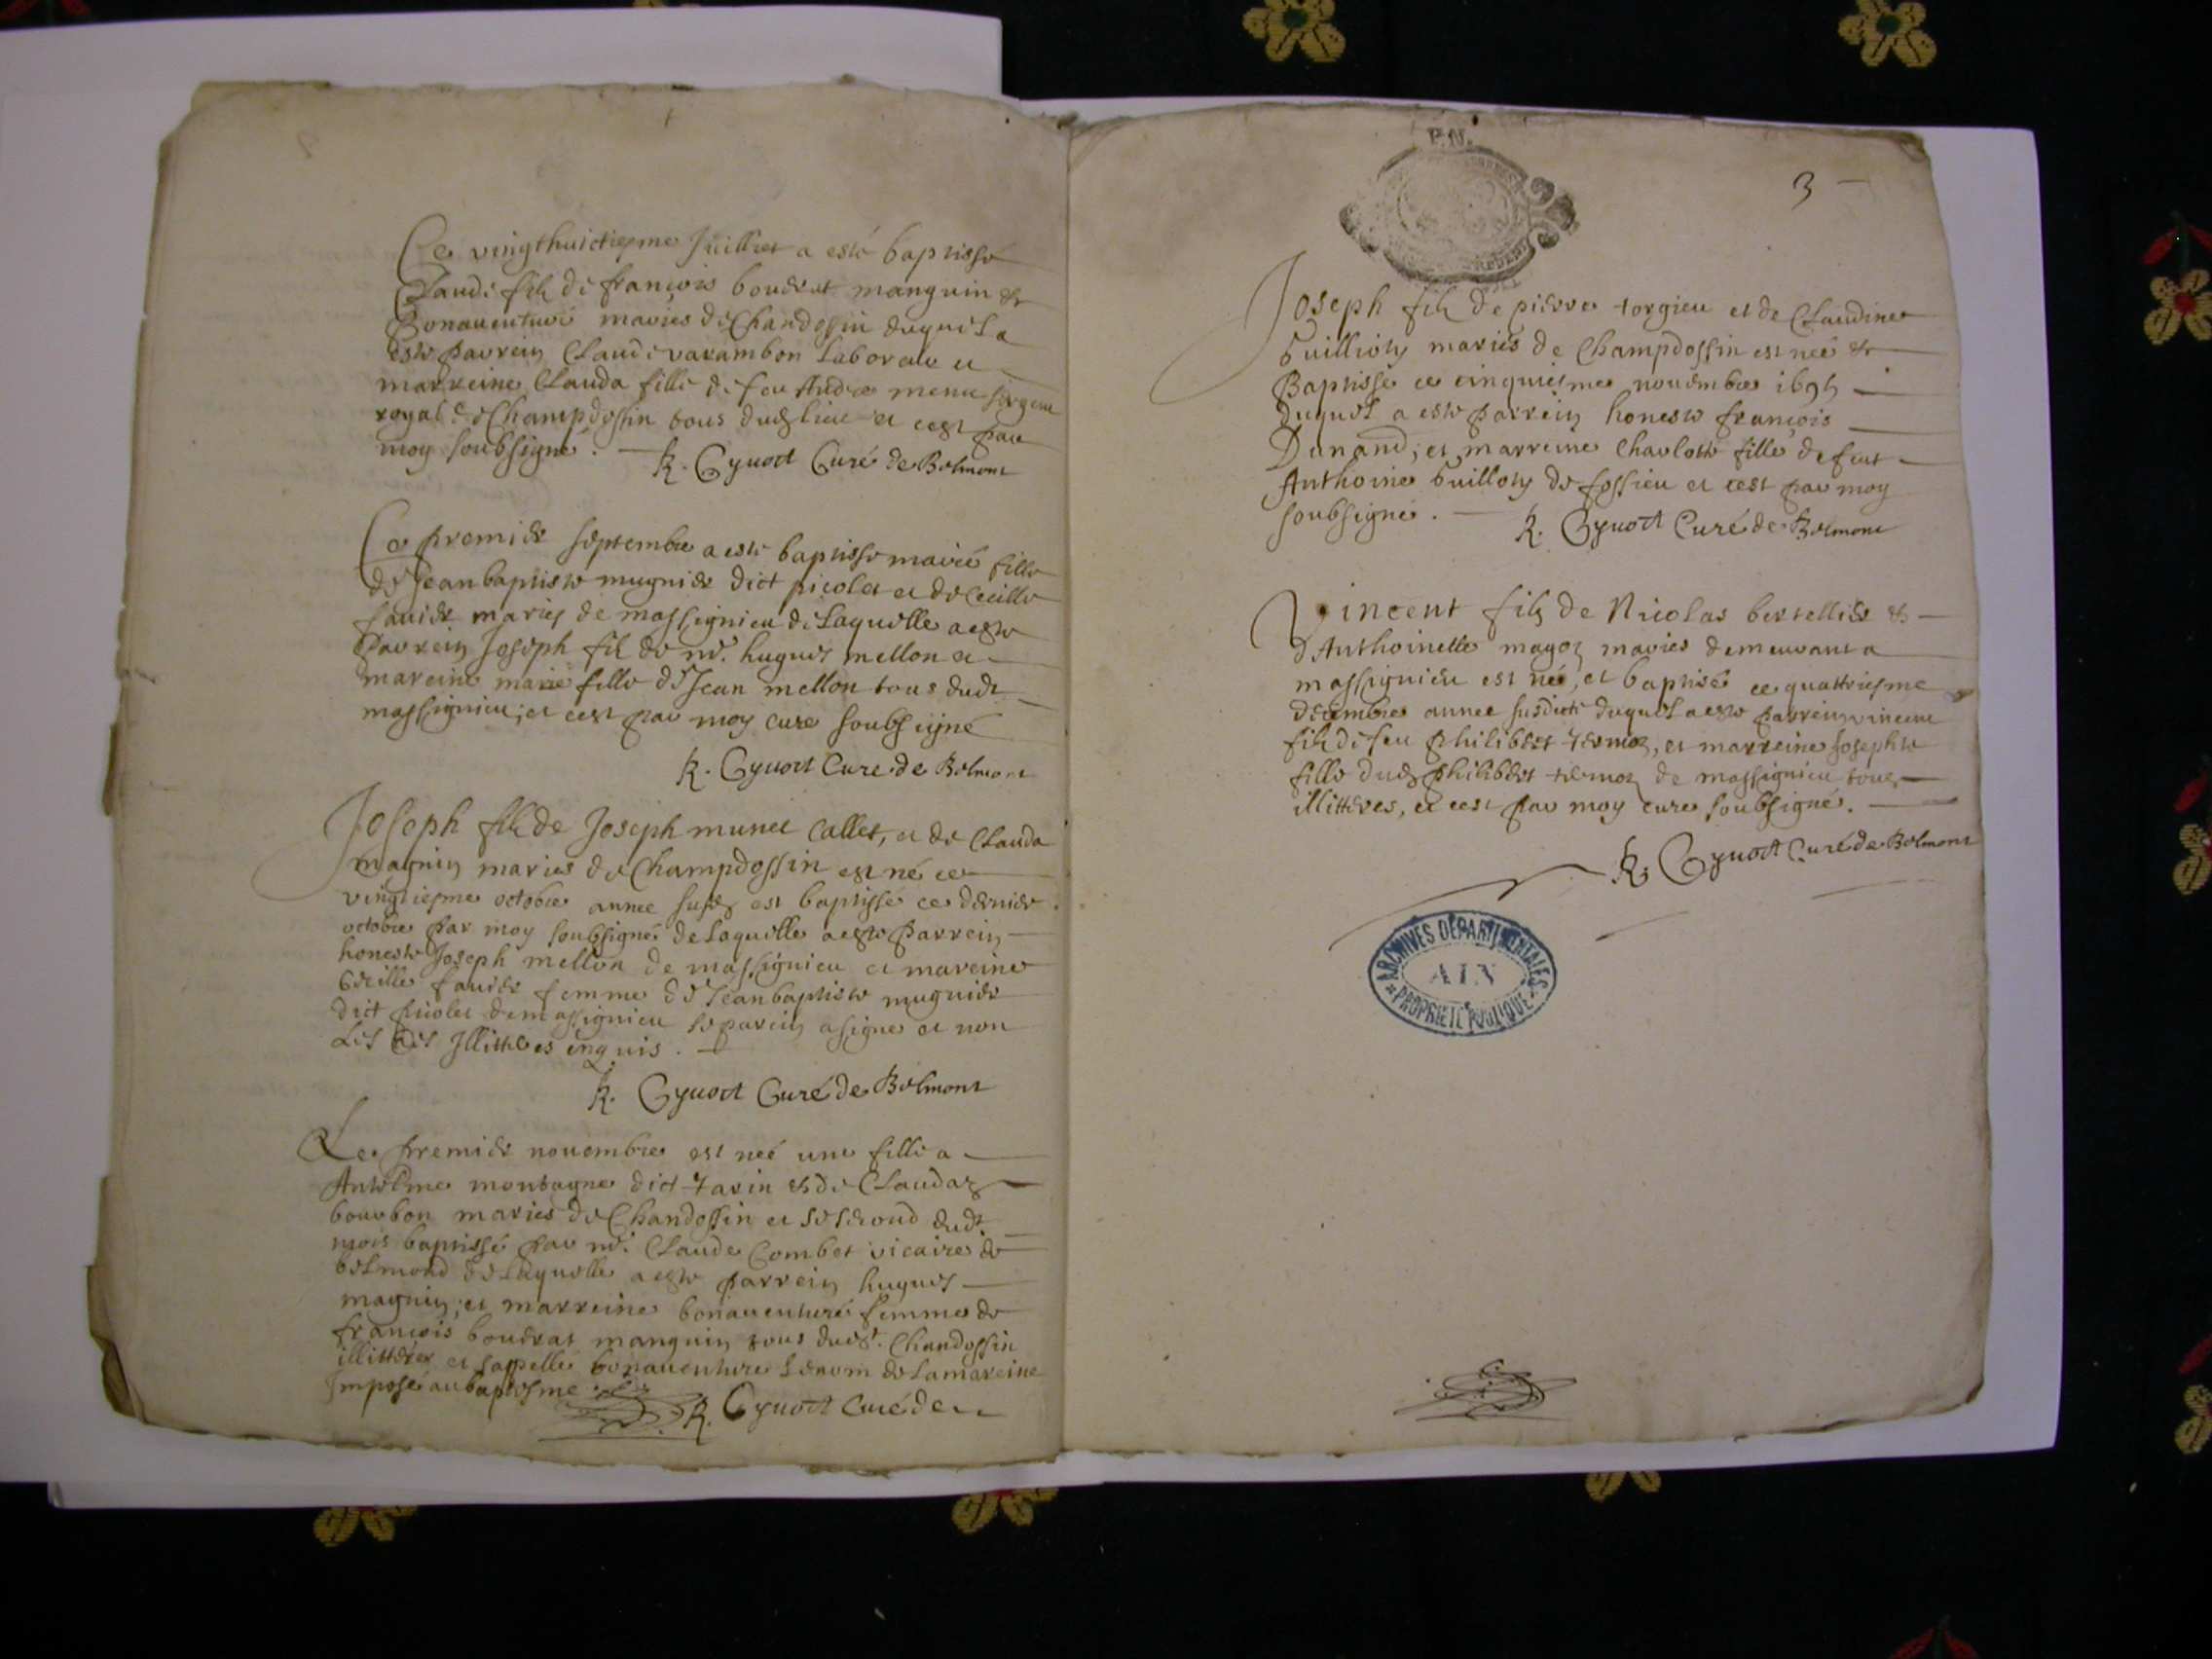 Ce vingthuictiesme Juilliet a esté baptissé
Claude fils de françois bouerat manguin &
Bonauenture mariés de Chandossin duquel a
esté parrein Claude varambon laboreur et
marreine Clauda fille de feu Andre menu sergent
royal de Champdossin tous dud lieu et cest par
moy soubsigné.
R. Gyuott Curé de Belmont
Ce premier septembre a esté baptissé marie fille
de Jean baptiste mugnier dict picolet et de Cecille
fauier mariés de massignieu de laquelle a esté
parrein Joseph fils de me. hugues mellon et
mareine marie fille de Jean mellon tous dudt
massignieu; et cest par moy curé soubsigné
R. Gyuott Curé de Belmont
Joseph fils de Joseph munet Callet, et de Clauda
magnin mariés de Champdossin est né ce
vingtiesme octobre annee susd est baptissé ce dernier
octobre par moy soubsigné de laquelle a esté parrein
honeste Joseph mellon de massignieu et mareine
Cecille fauier femme de Jean baptiste mugnier
dict picolet de massignieu le parein a signé et non
les illitteres enquis.
R. Gyuott Curé de Belmont
Le premier nouembre est neé une fille a
Antelme montagne dict tarin & de Claudaz
bourbon mariés de Chandossin et le second dudt
mois baptissé par me. Claude Combet vicaire de
belmond de laquelle a esté parrein hugues
magnin; et marreine bonauenture femme de
françois bouerat manguin tous dudt. Chandossin
illitteres et sappelle bonauenture le nom de la mareine
Imposé au baptesme.
R. Gyuott Curé de
P.N.
3
Joseph fils de pierre torgieu et de Claudine
Guillioty mariés de Champdossin est neé &
Baptissé ce cinquiesme nouembre 1695
duquel a esté parrein honeste françois
Dunand; et marreine Charlotte fille de feut
Anthoine Guilloty de fossieu et cest par moy
soubsigné.
R. Gyuott Curé de Belmont
Vincent fils de Nicolas bertellier &
d'Anthoinette magoz mariés demeurant a
massignieu est né, et baptisé ce quattriesme
decembre annee susdicte duquel a esté parrein vincent
fils de feu philibert termoz, et marreine Josephte
fille dud philibert termoz de massignieu tous
illitteres, et cest par moy curé soubsigné.
R. Gyuott Curé de Belmont
ARCHIVES DÉPARTEMENTALES
AIN
PROPRIÉTÉ PUBLIQUE